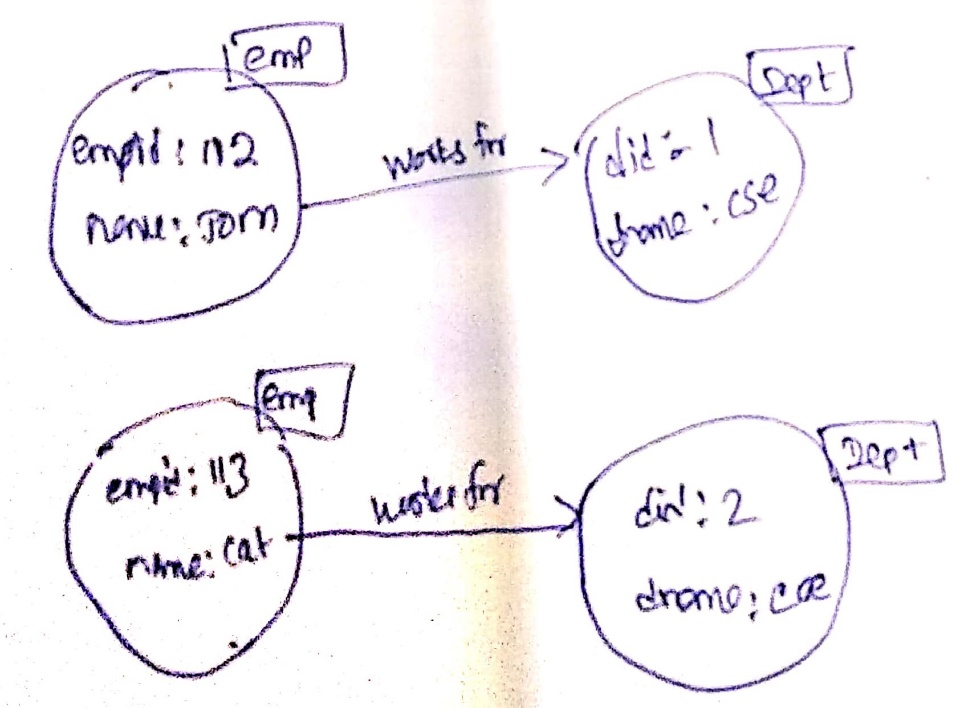 emp
empid: 112
name: Jom
works for
Dept
did: 1
dname: cse
emp
empid: 113
name: cat
works for
Dept
did: 2
dname: